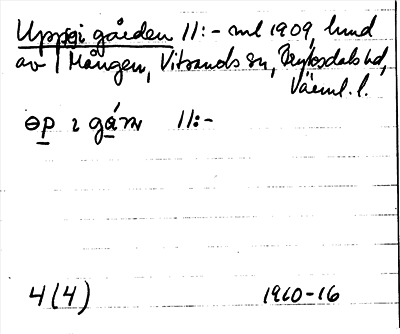 Uppgi gården 11:- ml 1909, lund
av Mången, Vitsands sn, Fryksdals hd,
Värml. l.
ɵp ı gá̱ɳ 11:-
4 (4) 1910-16